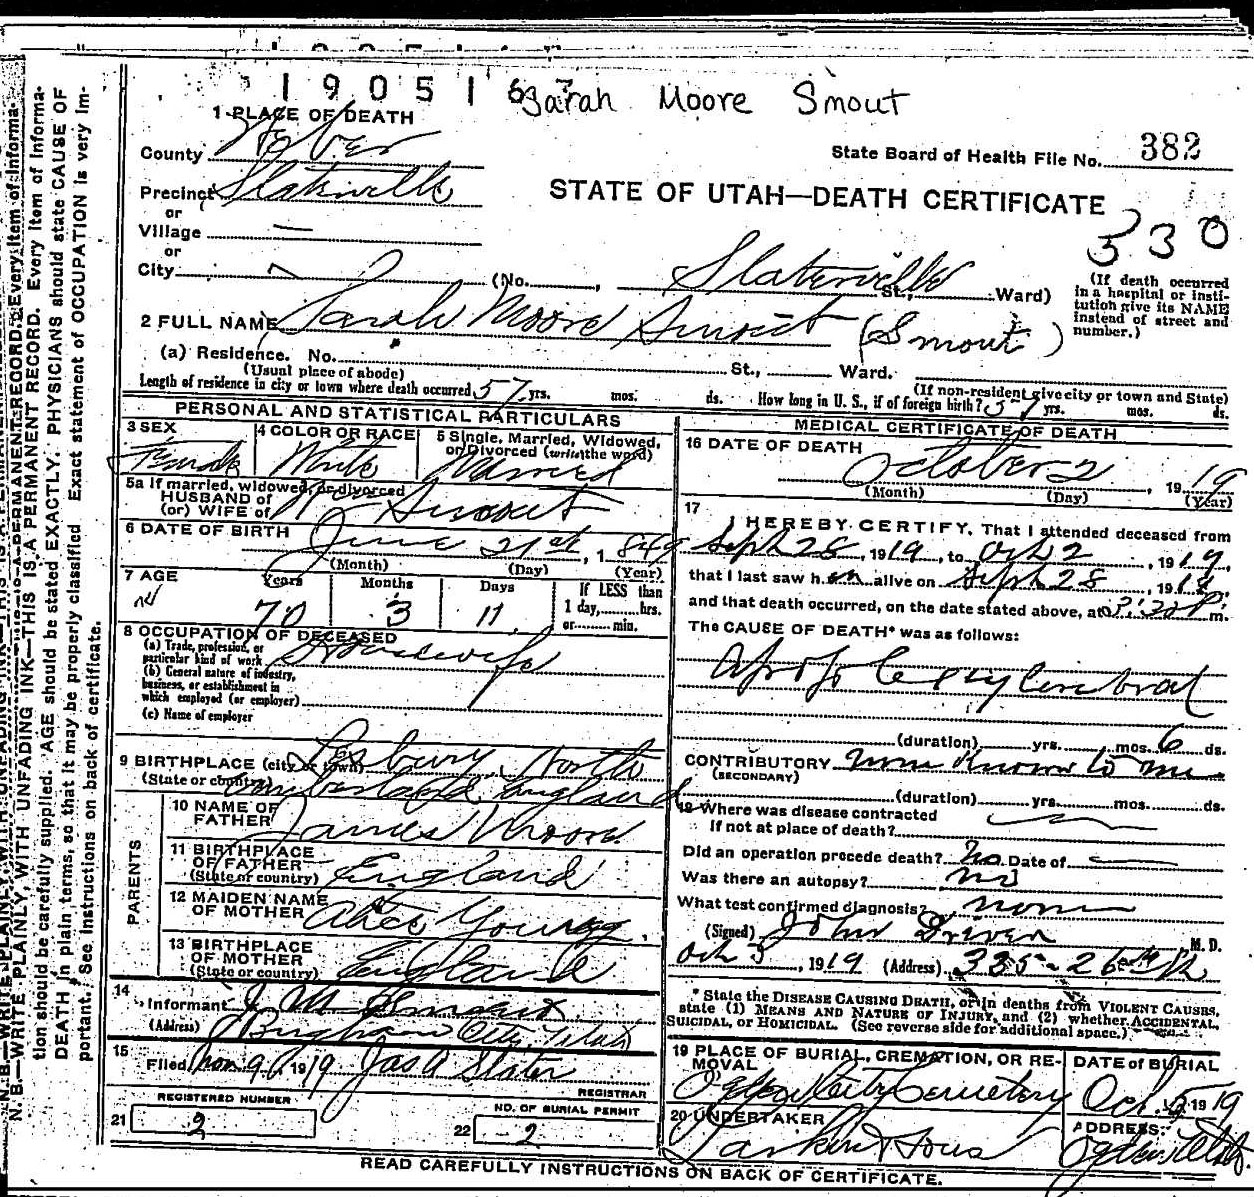 19051
Sarah Moore Smout
1 PLACE OF DEATH
County Weber
State Board of Health File No. 382
Precinct Slaterville
STATE OF UTAH—DEATH CERTIFICATE
or
Village —
530
or
City
(No. Slaterville St., Ward)
(If death occurred in a hospital or institution give its NAME instead of street and number.)
2 FULL NAME Sarah Moore Smout (Smout)
(a) Residence. No. St., Ward.
(Usual place of abode) (If non-resident give city or town and State)
Length of residence in city or town where death occurred 57 yrs. mos. ds. How long in U. S., if of foreign birth? 57 yrs. mos. ds.
PERSONAL AND STATISTICAL PARTICULARS
3 SEX Female
4 COLOR OR RACE White
5 Single, Married, Widowed, or Divorced (write the word) Married
5a If married, widowed, or divorced
HUSBAND of
(or) WIFE of Smout
6 DATE OF BIRTH June 21st, 1849
(Month) (Day) (Year)
7 AGE Years Months Days If LESS than
70 3 11 1 day, hrs.
or min.
8 OCCUPATION OF DECEASED
(a) Trade, profession, or particular kind of work Housewife
(b) General nature of industry, business, or establishment in which employed (or employer)
(c) Name of employer
9 BIRTHPLACE (city or town) Lesbury North
(State or country) umberland England
PARENTS
10 NAME OF FATHER James Moore
11 BIRTHPLACE OF FATHER (State or country) England
12 MAIDEN NAME OF MOTHER Alice Young
13 BIRTHPLACE OF MOTHER (State or country) England
14
Informant J M Smout
(Address) Bingham City, Utah
15
Filed Nov 9 1919 Jas A Slater
REGISTRAR
REGISTERED NUMBER
21 2
NO. OF BURIAL PERMIT
22 2
MEDICAL CERTIFICATE OF DEATH
16 DATE OF DEATH
October 2, 1919
(Month) (Day) (Year)
17
I HEREBY CERTIFY, That I attended deceased from
Sept 28, 1919, to Oct 2, 1919,
that I last saw her alive on Sept 28, 1919,
and that death occurred, on the date stated above, at 3:30 P. m.
The CAUSE OF DEATH* was as follows:
Apoplexy Cerebral
(duration) yrs. mos. 6 ds.
CONTRIBUTORY none known to me
(SECONDARY)
(duration) yrs. mos. ds.
18 Where was disease contracted
If not at place of death?
Did an operation procede death? No Date of —
Was there an autopsy? no
What test confirmed diagnosis? none
(Signed) John Driver M. D.
Oct 3, 1919 (Address) 385-26th St
* State the DISEASE CAUSING DEATH, or in deaths from VIOLENT CAUSES, state (1) MEANS AND NATURE OF INJURY, and (2) whether ACCIDENTAL, SUICIDAL, or HOMICIDAL. (See reverse side for additional space.)
19 PLACE OF BURIAL, CREMATION, OR REMOVAL
Ogden City Cemetery
DATE OF BURIAL
Oct 5 1919
20 UNDERTAKER
Larkin & Sons
ADDRESS:
Ogden, Utah.
READ CAREFULLY INSTRUCTIONS ON BACK OF CERTIFICATE.
N. B.—WRITE PLAINLY, WITH UNFADING INK—THIS IS A PERMANENT RECORD. Every item of informa-
tion should be carefully supplied. AGE should be stated EXACTLY. PHYSICIANS should state CAUSE OF
DEATH in plain terms, so that it may be properly classified. Exact statement of OCCUPATION is very im-
portant. See instructions on back of certificate.